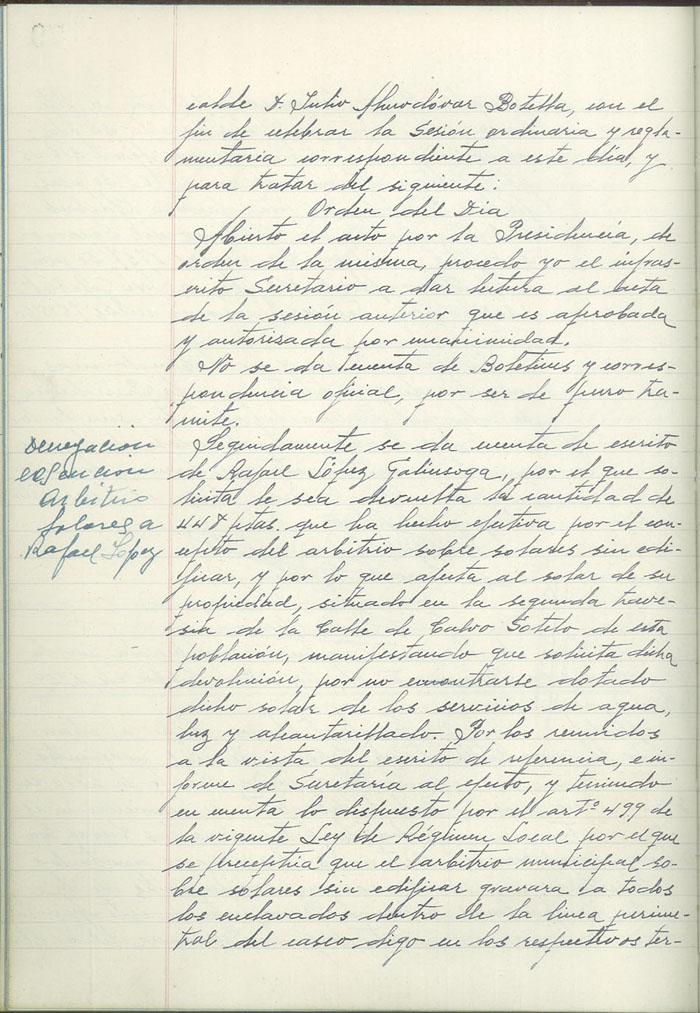 calde D. Julio Almodóvar Botella, con el
fin de celebrar la Sesión ordinaria y regla-
mentaria correspondiente a este día, y
para tratar del siguiente:
Orden del Dia
Abierto el acto por la Presidencia, de
orden de la misma, procedo yo el infras-
crito Secretario a dar lectura al acta
de la sesión anterior que es aprobada
y autorizada por unanimidad.
No se da cuenta de Boletines y corres-
pondencia oficial, por ser de puro tra-
mite.
Denegación
exención
Arbitrio
solares a
Rafael López
Seguidamente se da cuenta de escrito
de Rafael López Galinsoga, por el que so-
licita le sea devuelta la cantidad de
448 ptas. que ha hecho efectiva por el con-
cepto del arbitrio sobre solares sin edi-
ficar, y por lo que afecta al solar de su
propiedad, situado en la segunda trave-
sia de la Calle de Calvo Sotelo de esta
población, manifestando que solicita dicha
devolución, por no encontrarse dotado
dicho solar de los servicios de agua,
luz y alcantarillado. Por los reunidos
a la vista del escrito de referencia, e in-
forme de Secretaría al efecto, y teniendo
en cuenta lo dispuesto por el artº 499 de
la vigente Ley de Régimen Local por el que
se preceptúa que el arbitrio municipal so-
bre solares sin edificar gravara a todos
los enclavados dentro de la linea perime-
tral del casco digo en los respectivos ter-